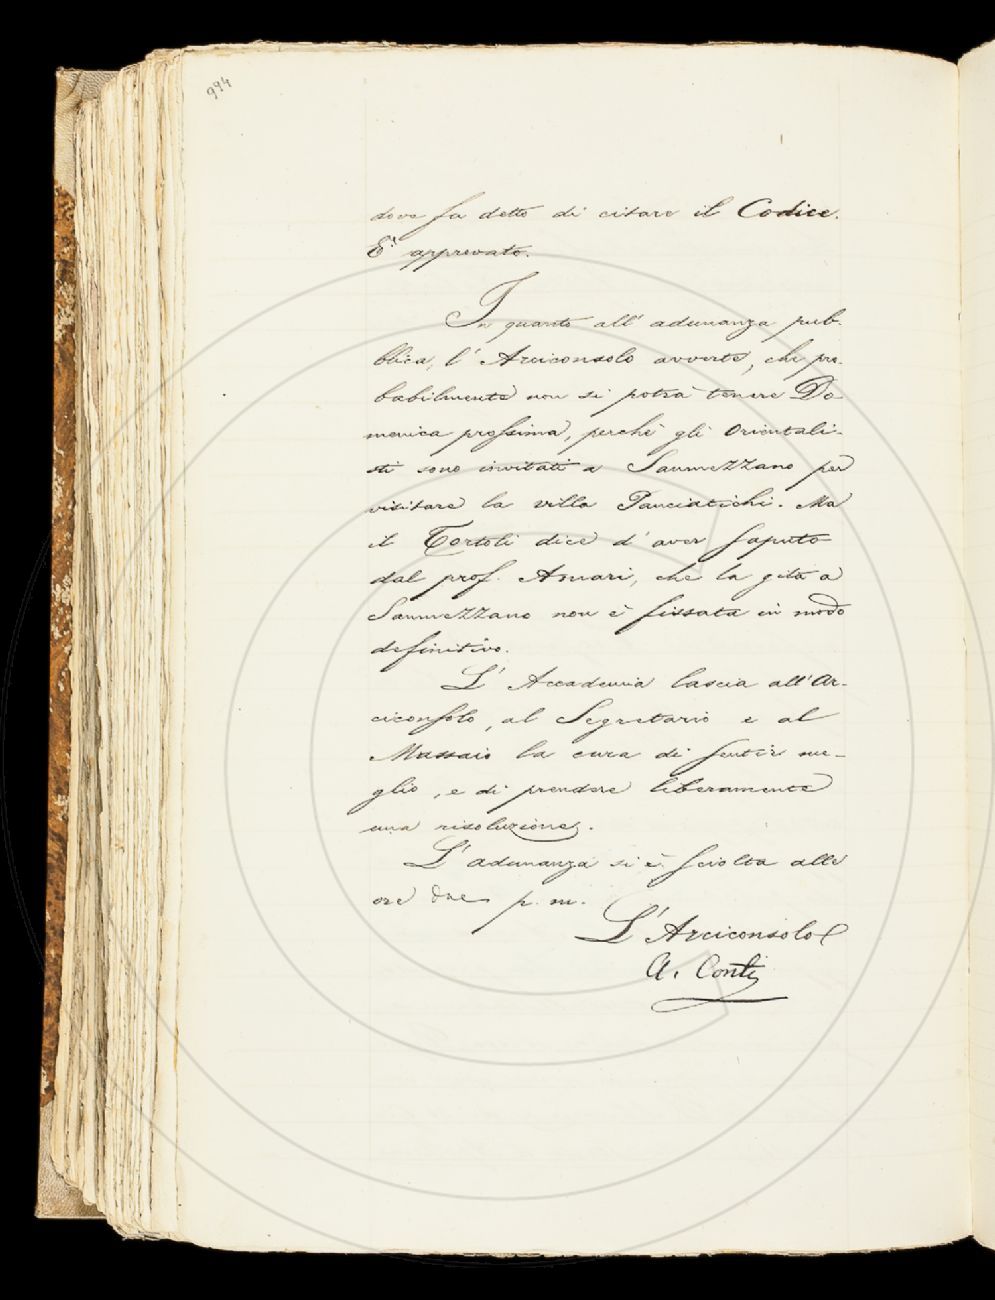 994
dove fa detto di citare il Codice.
E' approvato.
In quanto all' adunanza pub-
blica, l' Arciconsolo avverte, che pro-
babilmente non si potrà tenere Do-
menica prossima, perchè gli Orientali-
sti sono invitati a Sammezzano per
visitare la villa Panciatichi. Ma
il Tortoli dice d' aver saputo
dal prof. Amari, che la gita a
Sammezzano non è fissata in modo
definitivo.
L' Accademia lascia all' Ar-
ciconsolo, al Segretario e al
Massaio la cura di sentir me-
glio, e di prendere liberamente
una risoluzione.
L' adunanza si è sciolta alle
ore due p. m.
L' Arciconsolo
A. Conti